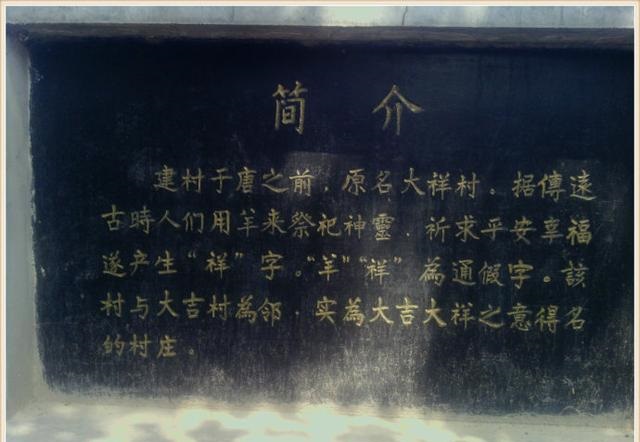 简介
建村于唐之前，原名大祥村。据傳遠
古時人们用羊来祭祀神靈，祈求平安幸福
遂产生“祥”字。“羊”“祥”為通假字。該
村与大吉村為邻，实為大吉大祥之意得名
的村庄。